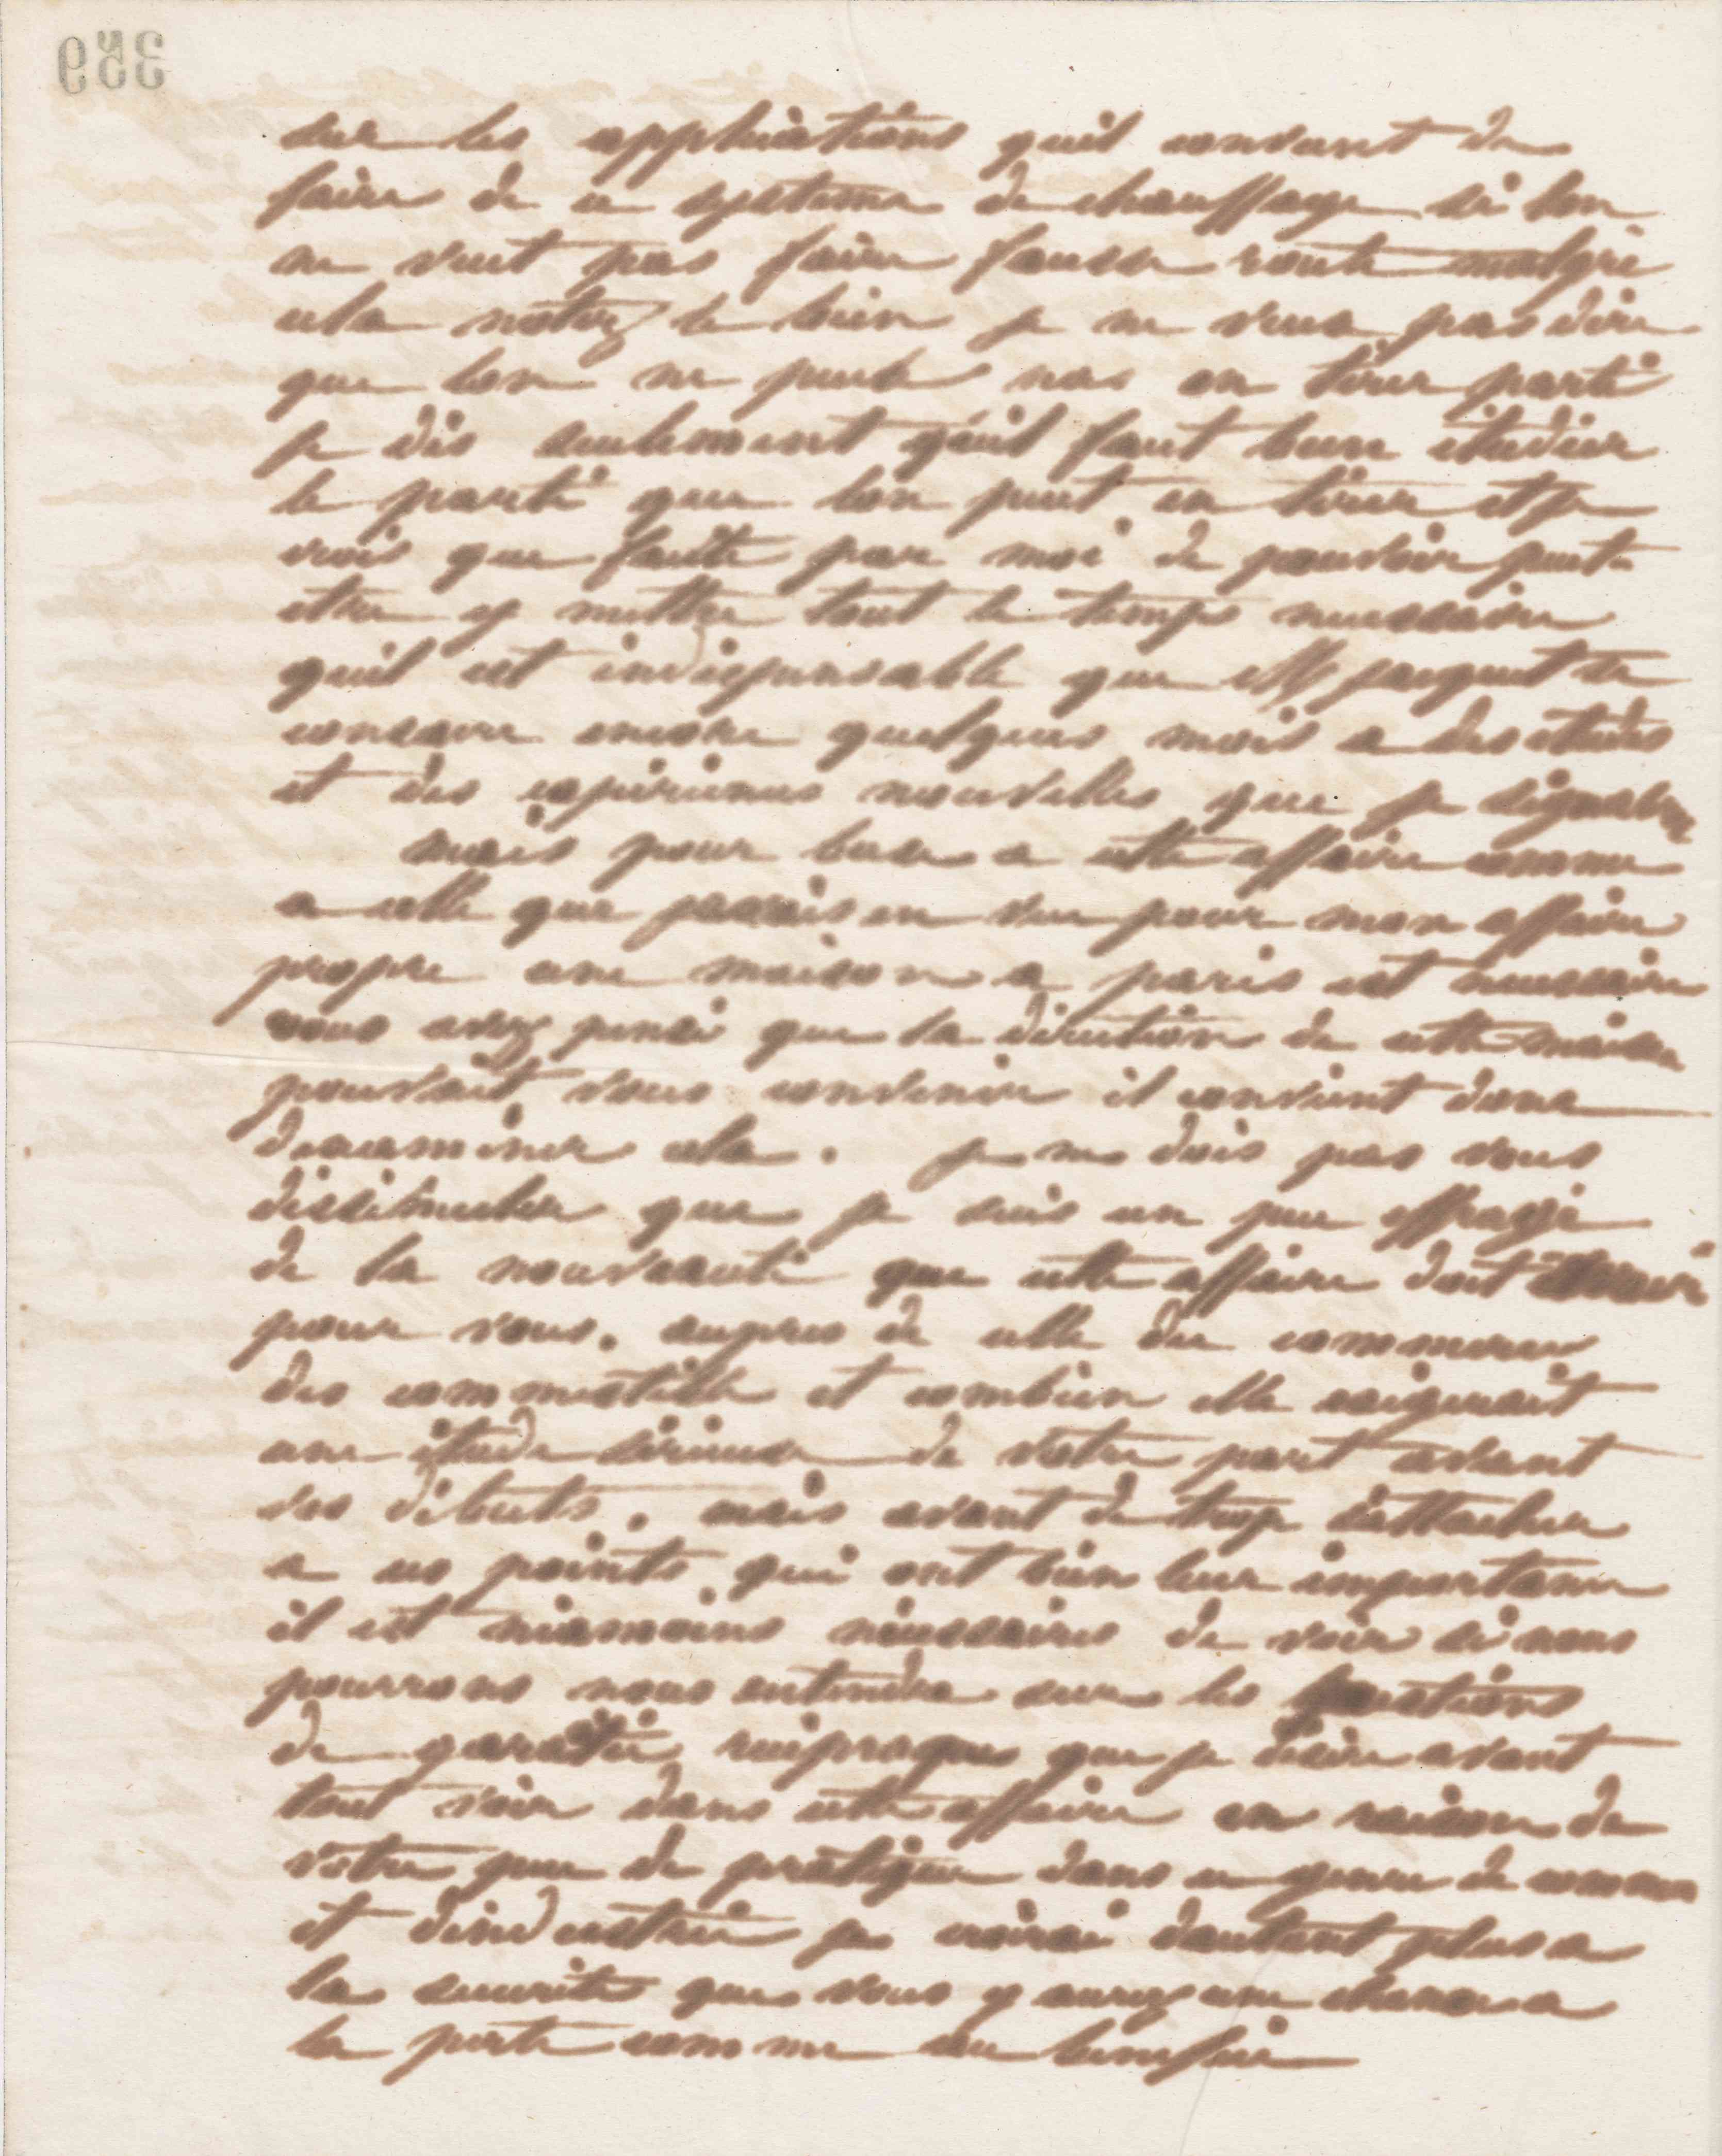 359
sur les applications quil convient de
faire de ce systeme de chauffage si lon
ne veut pas faire fausse route malgré
cela notez le bien je ne veux pas dire
que lon ne puisse pas en tirer parti
je dis seulement quil faut bien étudier
le parti que lon peut en tirer et je
crois que faute par moi de pouvoir peut
etre y mettre tout le temps necessaire
quil est indispensable que
consacre encore quelques mois a des etudes
et des expériences nouvelles que je signalerai
mais pour base a cette affaire comme
a celle que javais en vue pour mon affaire
propre une maison a paris est necessaire
vous avez pensé que la direction de cette maison
pouvait vous convenir il convient donc
dexaminer cela. je ne dois pas vous
dissimuler que je suis un peu effrayé
de la nouveauté que cette affaire doit avoir
pour vous. aupres de celle du commerce
des commestible et combien elle exigerait
une étude sérieuse de votre part avant
vos débuts. mais avant de trop sattacher
a ces points qui ont bien leur importance
il est néamoins nécessaires de voir si nous
pourrons nous entendre sur les questions
de garatie reciproques que je désire avant
tout voir dans cette affaire en raison de
votre peu de pratique dans ce genre de
et dindustrie je croirai dautant plus a
la securité que vous y aurez une chance a
la perte comme au benefice